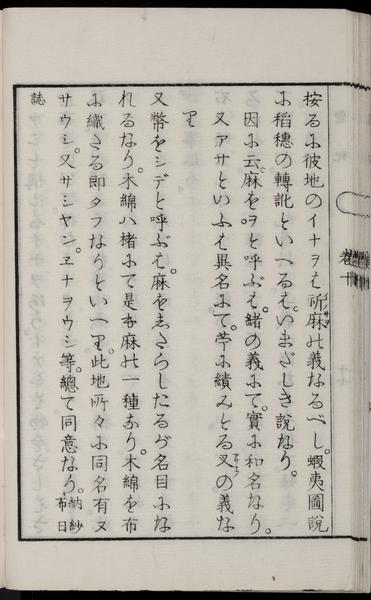 按るに彼地のイナヲは、所麻の義なるべし。蝦夷圖説
に稻穂の轉訛といへるは、いまだしき説なり。
因に云、麻をヲと呼ぶは、緒の義にて、實に和名なり。
又アサといふは異名にて、苧に績みとる叉の義な
り
又幣をシデと呼ぶは、麻を志たらしたるが名目にな
れるなり。木綿ハ楮にて是亦麻の一種なり。木綿を布
に織たる即タフなりといへり。此地所々に同名有又
サウシ。又サシヤン。ヱナヲウシ等。總て同意なり。納紗布日
誌